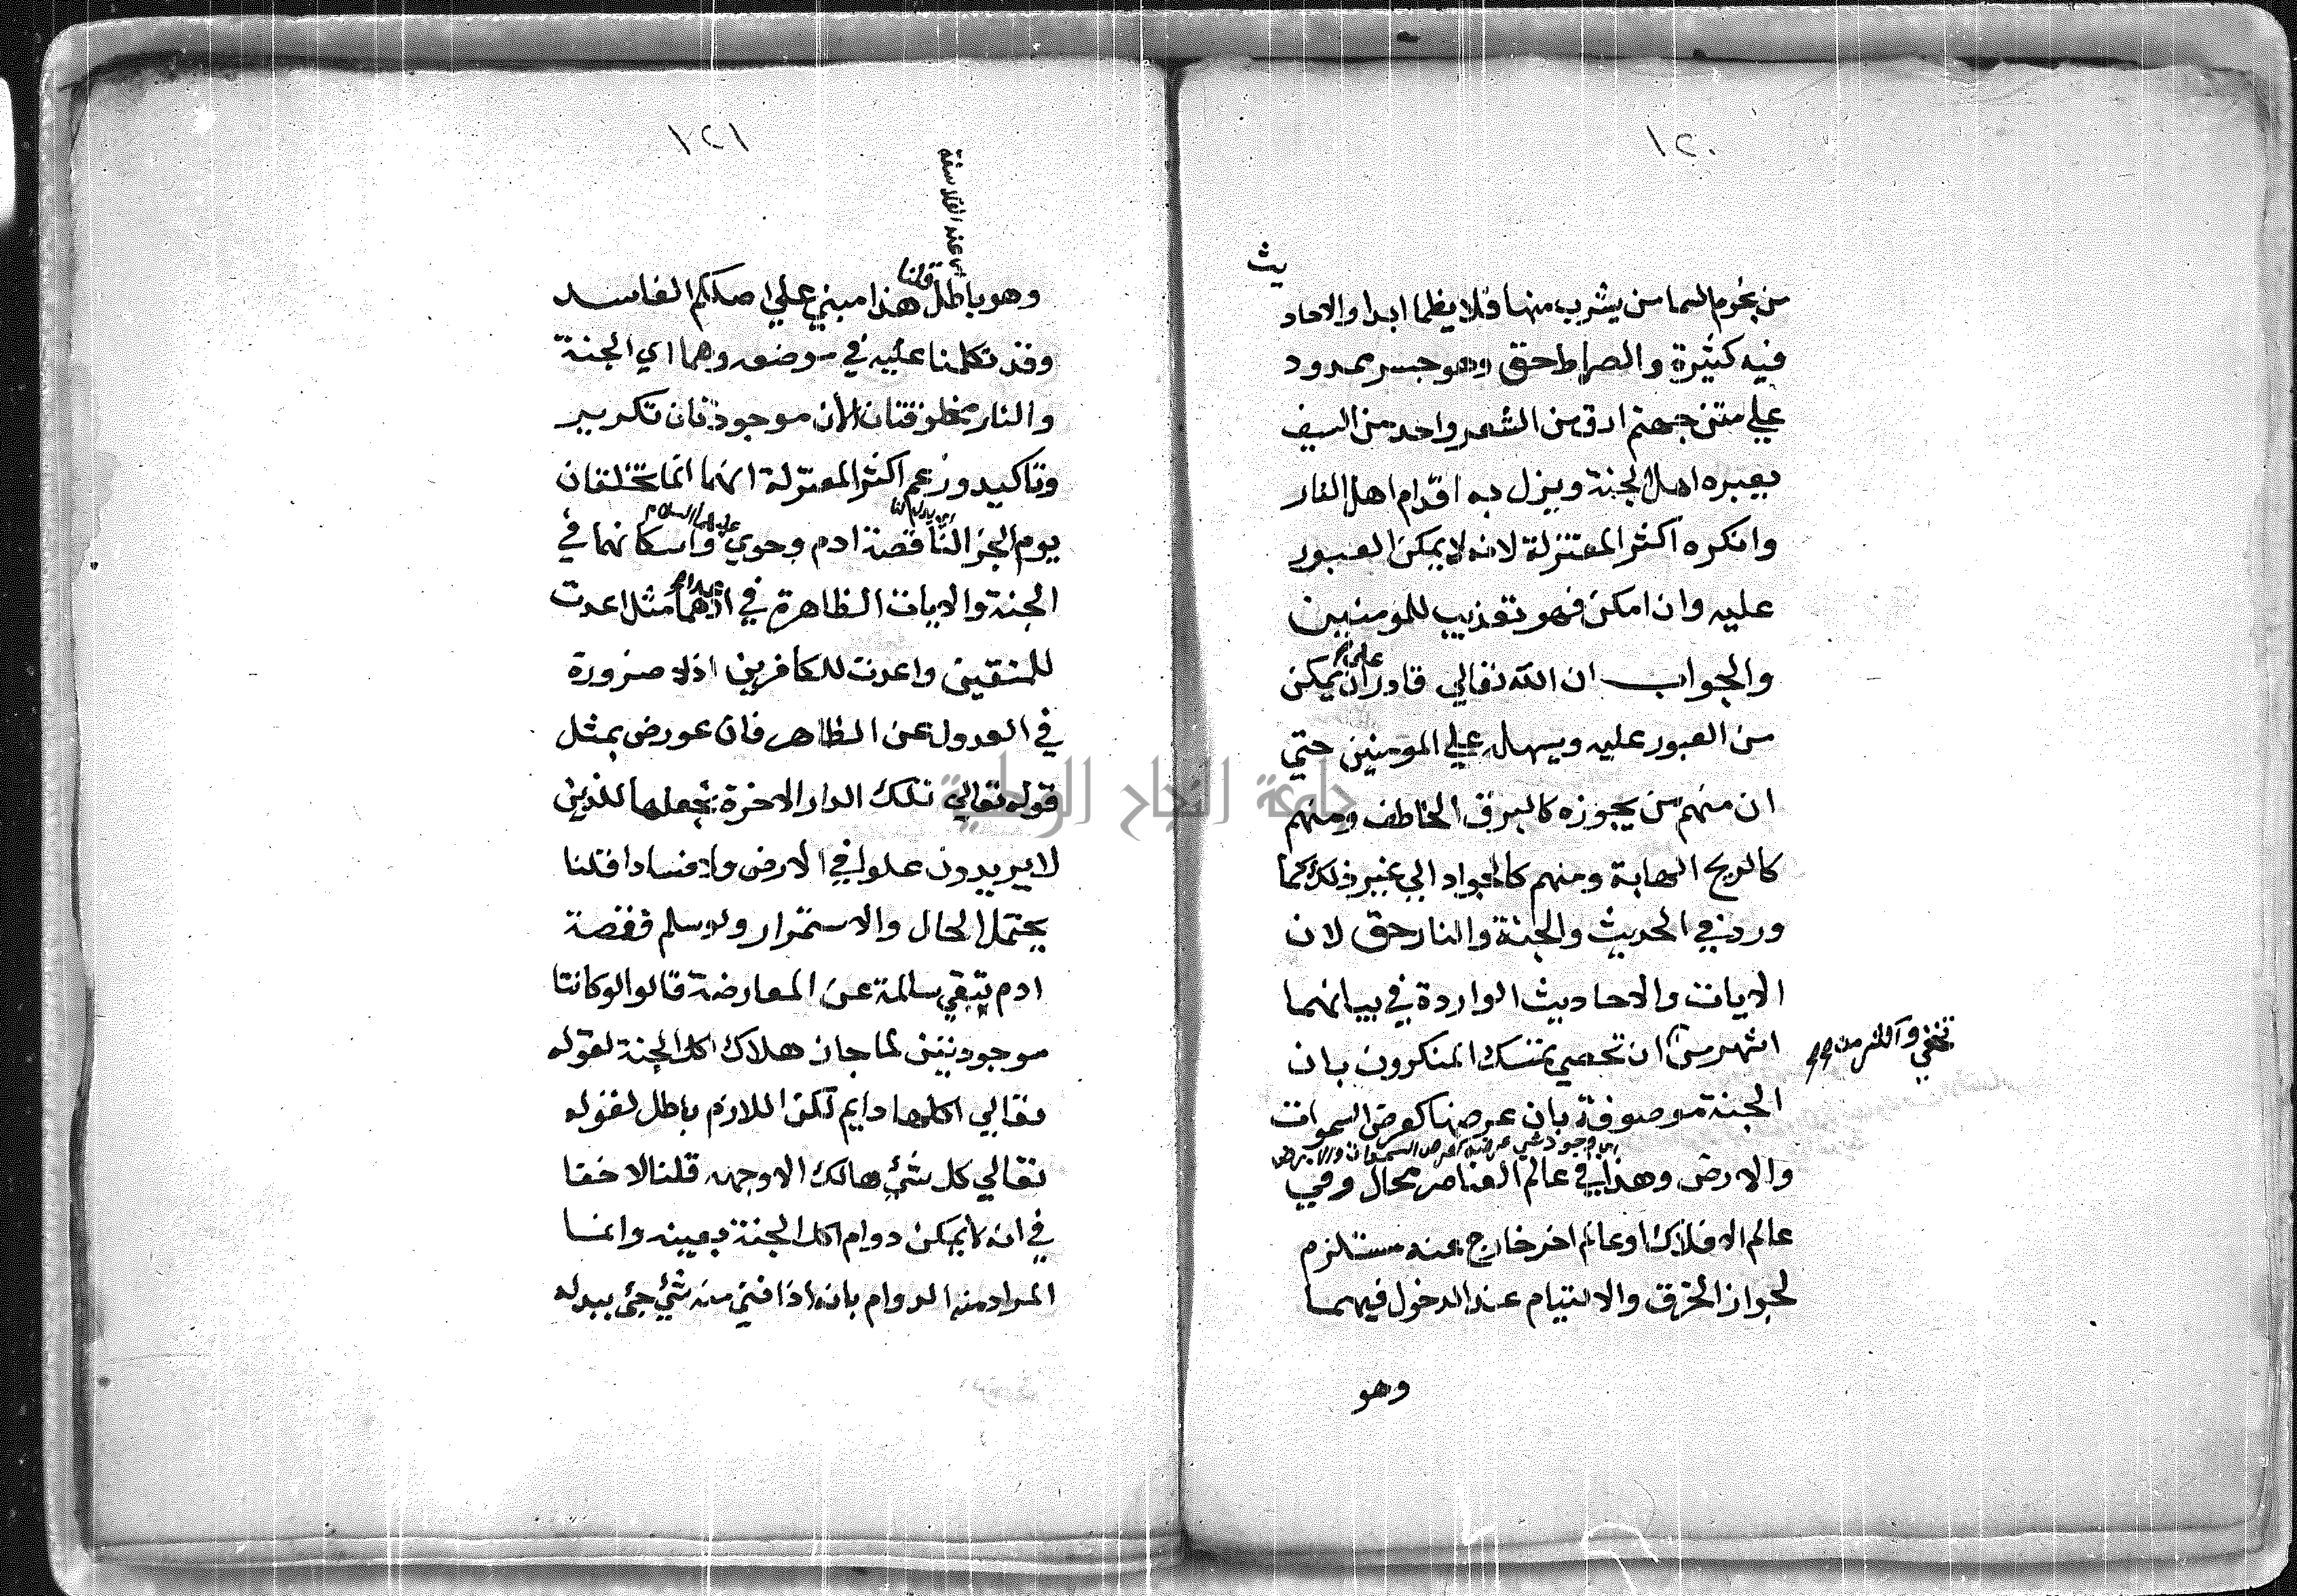 ١٢٠
يث
من نجوم السما من يشرب منها فلا يظما ابدا والاحاد
فيه كثيرة والصراط حق وهو جسر ممدود
علي متن جهنم ادق من الشعر واحد من السيف
يعبره اهل الجنة ويزل به اقدام اهل النار
وانكره اكثر المعتزلة لانه لا يمكن العبور
عليه وان امكن فهو تعذيب للمومنين
علي
والجواب ان الله تعالي قادر ان يمكن
من العبور عليه ويسهله علي المومنين حتي
ان منهم من يجوزه كالبرق الخاطف ومنهم
كالريح الهابة ومنهم كالجواد الي غير ذلك مما
ورد في الحديث والجنة والنار حق لان
الايات والاحاديث الواردة في بيانهما
اشهر من ان تحصي تمسك المنكرون بان
تخفي واكثر من
الجنة موصوفة بان عرضها كعرض السموات
اي وجود شي عرضه كعرض السموات والارض
والارض وهذا في عالم العناصر محال وفي
عالم الافلاك او عالم اخر خارج عنه مستلزم
لجواز الخرق والالتيام عند الدخول فيهما
وهو
١٢١
عند الفلاسفة
قلنا
وهو باطل هذا مبني علي اصلكم الفاسد
وقد تكلمنا عليه في موضعه وهما اي الجنة
والنار مخلوقتان الان موجودتان تكرير
وتاكيد وزعم اكثر المعتزلة انهما انما تخلقان
عليهما السلام
يوم الجزا لنا قصة ادم وحوي واسكانهما في
الجنة والايات الظاهرة في اعدادهما مثل اعدت
للمتقين واعدت للكافرين اذلا ضرورة
في العدول عن الظاهر فان عورض بمثل
قوله تعالي تلك الدار الاخرة نجعلها للذين
لا يريدون علوا في الارض ولا فسادا قلنا
يحتمل الحال والاستمرار ولو سلم فقصة
ادم تبقي سالمة عن المعارضة قالوا لو كانتا
موجودتين لما جاز هلاك اكل الجنة لقوله
تعالي اكلها دايم لكن اللازم باطل لقوله
تعالي كل شئ هالك الا وجهه قلنا لا خفا
في انه لا يمكن دوام اكل الجنة بعينه وانما
المراد منه الدوام بانه اذا فني منه شئ جئ ببدله
جامعة النجاح الوطنية